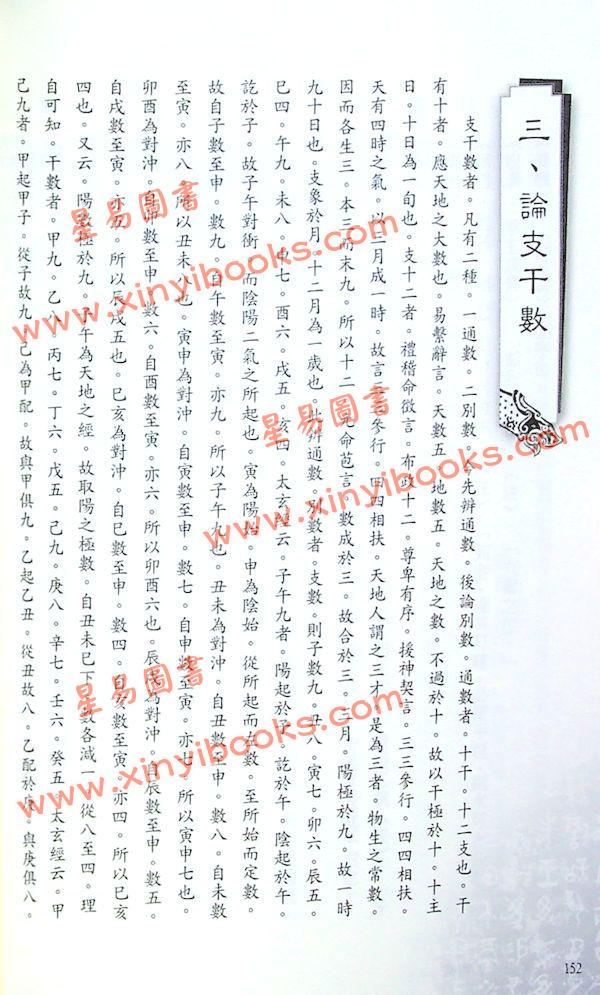 三、論支干數
支干數者。凡有二種。一通數。二別數。今先辨通數。後論別數。通數者。十干。十二支也。干
有十者。應天地之大數也。易繫辭言。天數五。地數五。天地之數。不過於十。故以干極於十。十主
日。十日為一旬也。支十二者。禮稽命徵言。布政十二。尊卑有序。援神契言。三三參行。四四相扶。
天有四時之氣。以三月成一時。故言三三參行。四四相扶。天地人謂之三才。是為三者。物生之常數。
因而各生三。本三而末九。所以十二。元命苞言。數成於三。故合於三。三月。陽極於九。故一時
九十日也。支象於月。十二月為一歲也。此辨通數。別數者。支數。則子數九。丑八。寅七。卯六。辰五。
巳四。午九。未八。申七。酉六。戌五。亥四。太玄經云。子午九者。陽起於子。訖於午。陰起於午。
訖於子。故子午對衝。而陰陽二氣之所起也。寅為陽始。申為陰始。從所起而左數。至所始而定數。
故自子數至申。數九。自午數至寅。亦九。所以子午九也。丑未為對沖。自丑數至申。數八。自未數
至寅。亦八。所以丑未八也。寅申為對沖。自寅數至申。數七。自申數至寅。亦七。所以寅申七也。
卯酉為對沖。自卯數至申。數六。自酉數至寅。亦六。所以卯酉六也。辰戌為對沖。自辰數至申。數五。
自戌數至寅。亦五。所以辰戌五也。巳亥為對沖。自巳數至申。數四。自亥數至寅。亦四。所以巳亥
四也。又云。陽數極於九。子午為天地之經。故取陽之極數。自丑未巳下。數各減一。從八至四。理
自可知。干數者。甲九。乙八。丙七。丁六。戊五。己九。庚八。辛七。壬六。癸五。太玄經云。甲
己九者。甲起甲子。從子故九。己為甲配。故與甲俱九。乙起乙丑。從丑故八。乙配於庚。與庚俱八。
152
星易圖書
www.xinyibooks.com
星易圖書
www.xinyibooks.com
星易圖書
www.xinyibooks.com